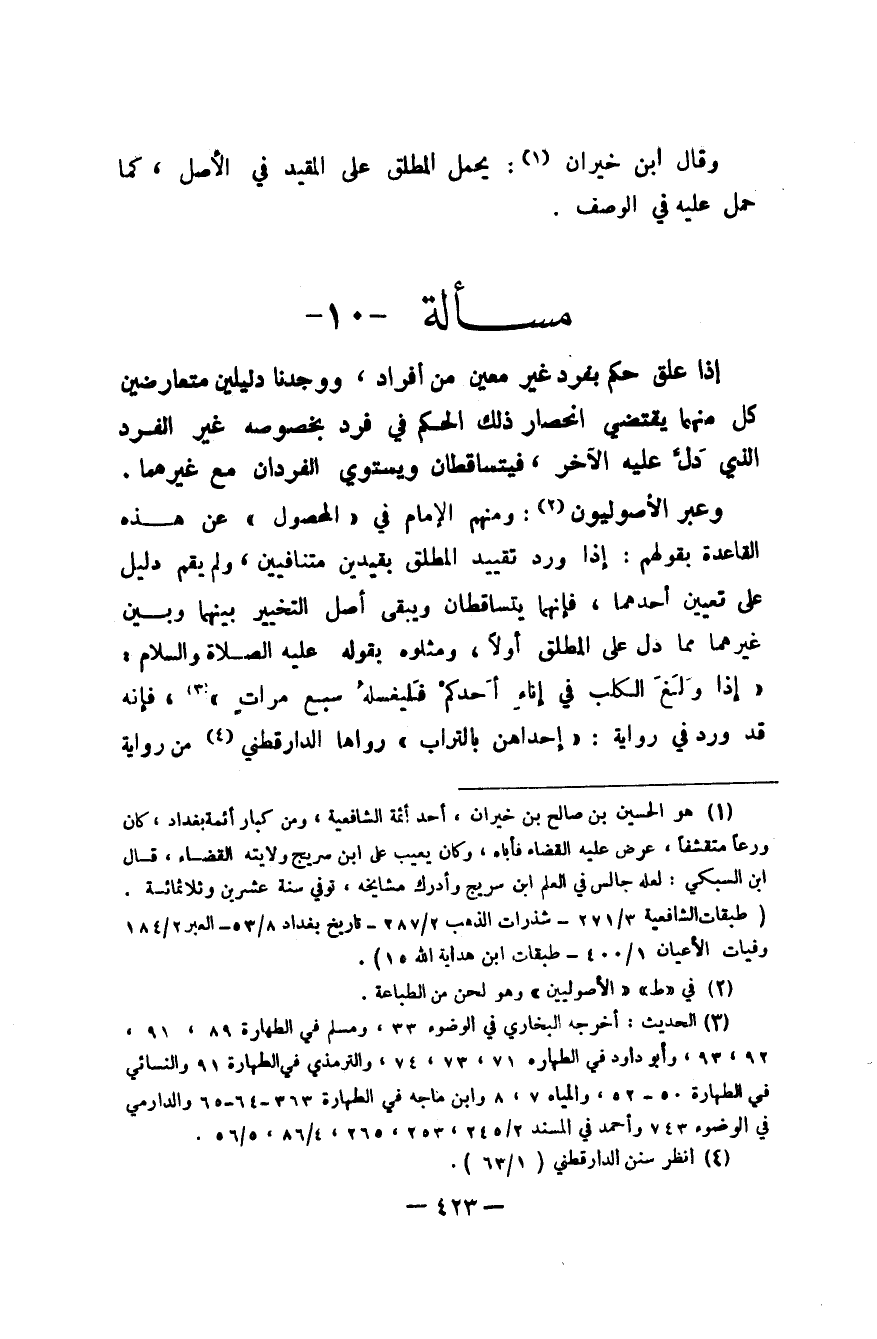 وقال ابن خيران (١) : يحمل المطلق على المقيد في الأصل ، كما
حمل عليه في الوصف .
مســـألة -١٠-
إذا علق حكم بفرد غير معين من أفراد ، ووجدنا دليلين متعارضين
كل منهما يقتضي انحصار ذلك الحكم في فرد بخصوصه غير الفرد
الذي دلّ عليه الآخر ، فيتساقطان ويستوي الفردان مع غيرهما .
وعبر الأصوليون (٢) : ومنهم الإمام في « المحصول » عن هـــذه
القاعدة بقولهم : إذا ورد تقييد المطلق بقيدين متنافيين ، ولم يقم دليل
على تعيين أحدهما ، فإنهما يتساقطان ويبقى أصل التخيير بينهما وبـــين
غيرهما مما دل على المطلق أولاً ، ومثلوه بقوله عليه الصـلاة والسلام :
« إذا وَلَغَ الكلب في إناءِ أَحدكمْ فَليغسلهُ سبع مراتٍ »(٣) ، فإنه
قد ورد في رواية : « إحداهن بالتراب » رواها الدارقطني (٤) من رواية
(١) هو الحسين بن صالح بن خيران ، أحد أئمة الشافعية ، ومن كبار أئمة بغداد ، كان
ورعاً متقشفاً ، عرض عليه القضاء فأباه ، وكان يعيب على ابن سريج ولايته القضـاء ، قـال
ابن السبكي : لعله جالس في العلم ابن سريج وأدرك مشايخه ، توفي سنة عشرين وثلاثمائسة .
( طبقات الشافعية ٢٧١/٣ – شذرات الذهب ٢٨٧/٢ – تاريخ بغداد ٥٣/٨– العبر ١٨٤/٢
وفيات الأعيان ٤٠٠/١ – طبقات ابن هداية الله ١٥ ) .
(٢) في «ط» « الأصوليين » وهو لحن من الطباعة .
(٣) الحديث : أخرجه البخاري في الوضوء ٣٣ ، ومسلم في الطهارة ٨٩ ، ٩١ ،
٩٢ ، ٩٣ ، وأبو داود في الطهاره ٧١ ، ٧٣ ، ٧٤ ، والترمذي في الطهارة ٩١ والنسائي
في الطهارة ٥٠ – ٥٢ ، والمياه ٧ ، ٨ وابن ماجه في الطهارة ٣٦٣–٦٤–٦٥ والدارمي
في الوضوء ٧٤٣ وأحمد في المسند ٢٤٥/٢ ، ٢٥٣ ، ٢٦٥ ، ٨٦/٤ ، ٥٦/٥ .
(٤) انظر سنن الدارقطني ( ٦٣/١ ) .
– ٤٢٣ –